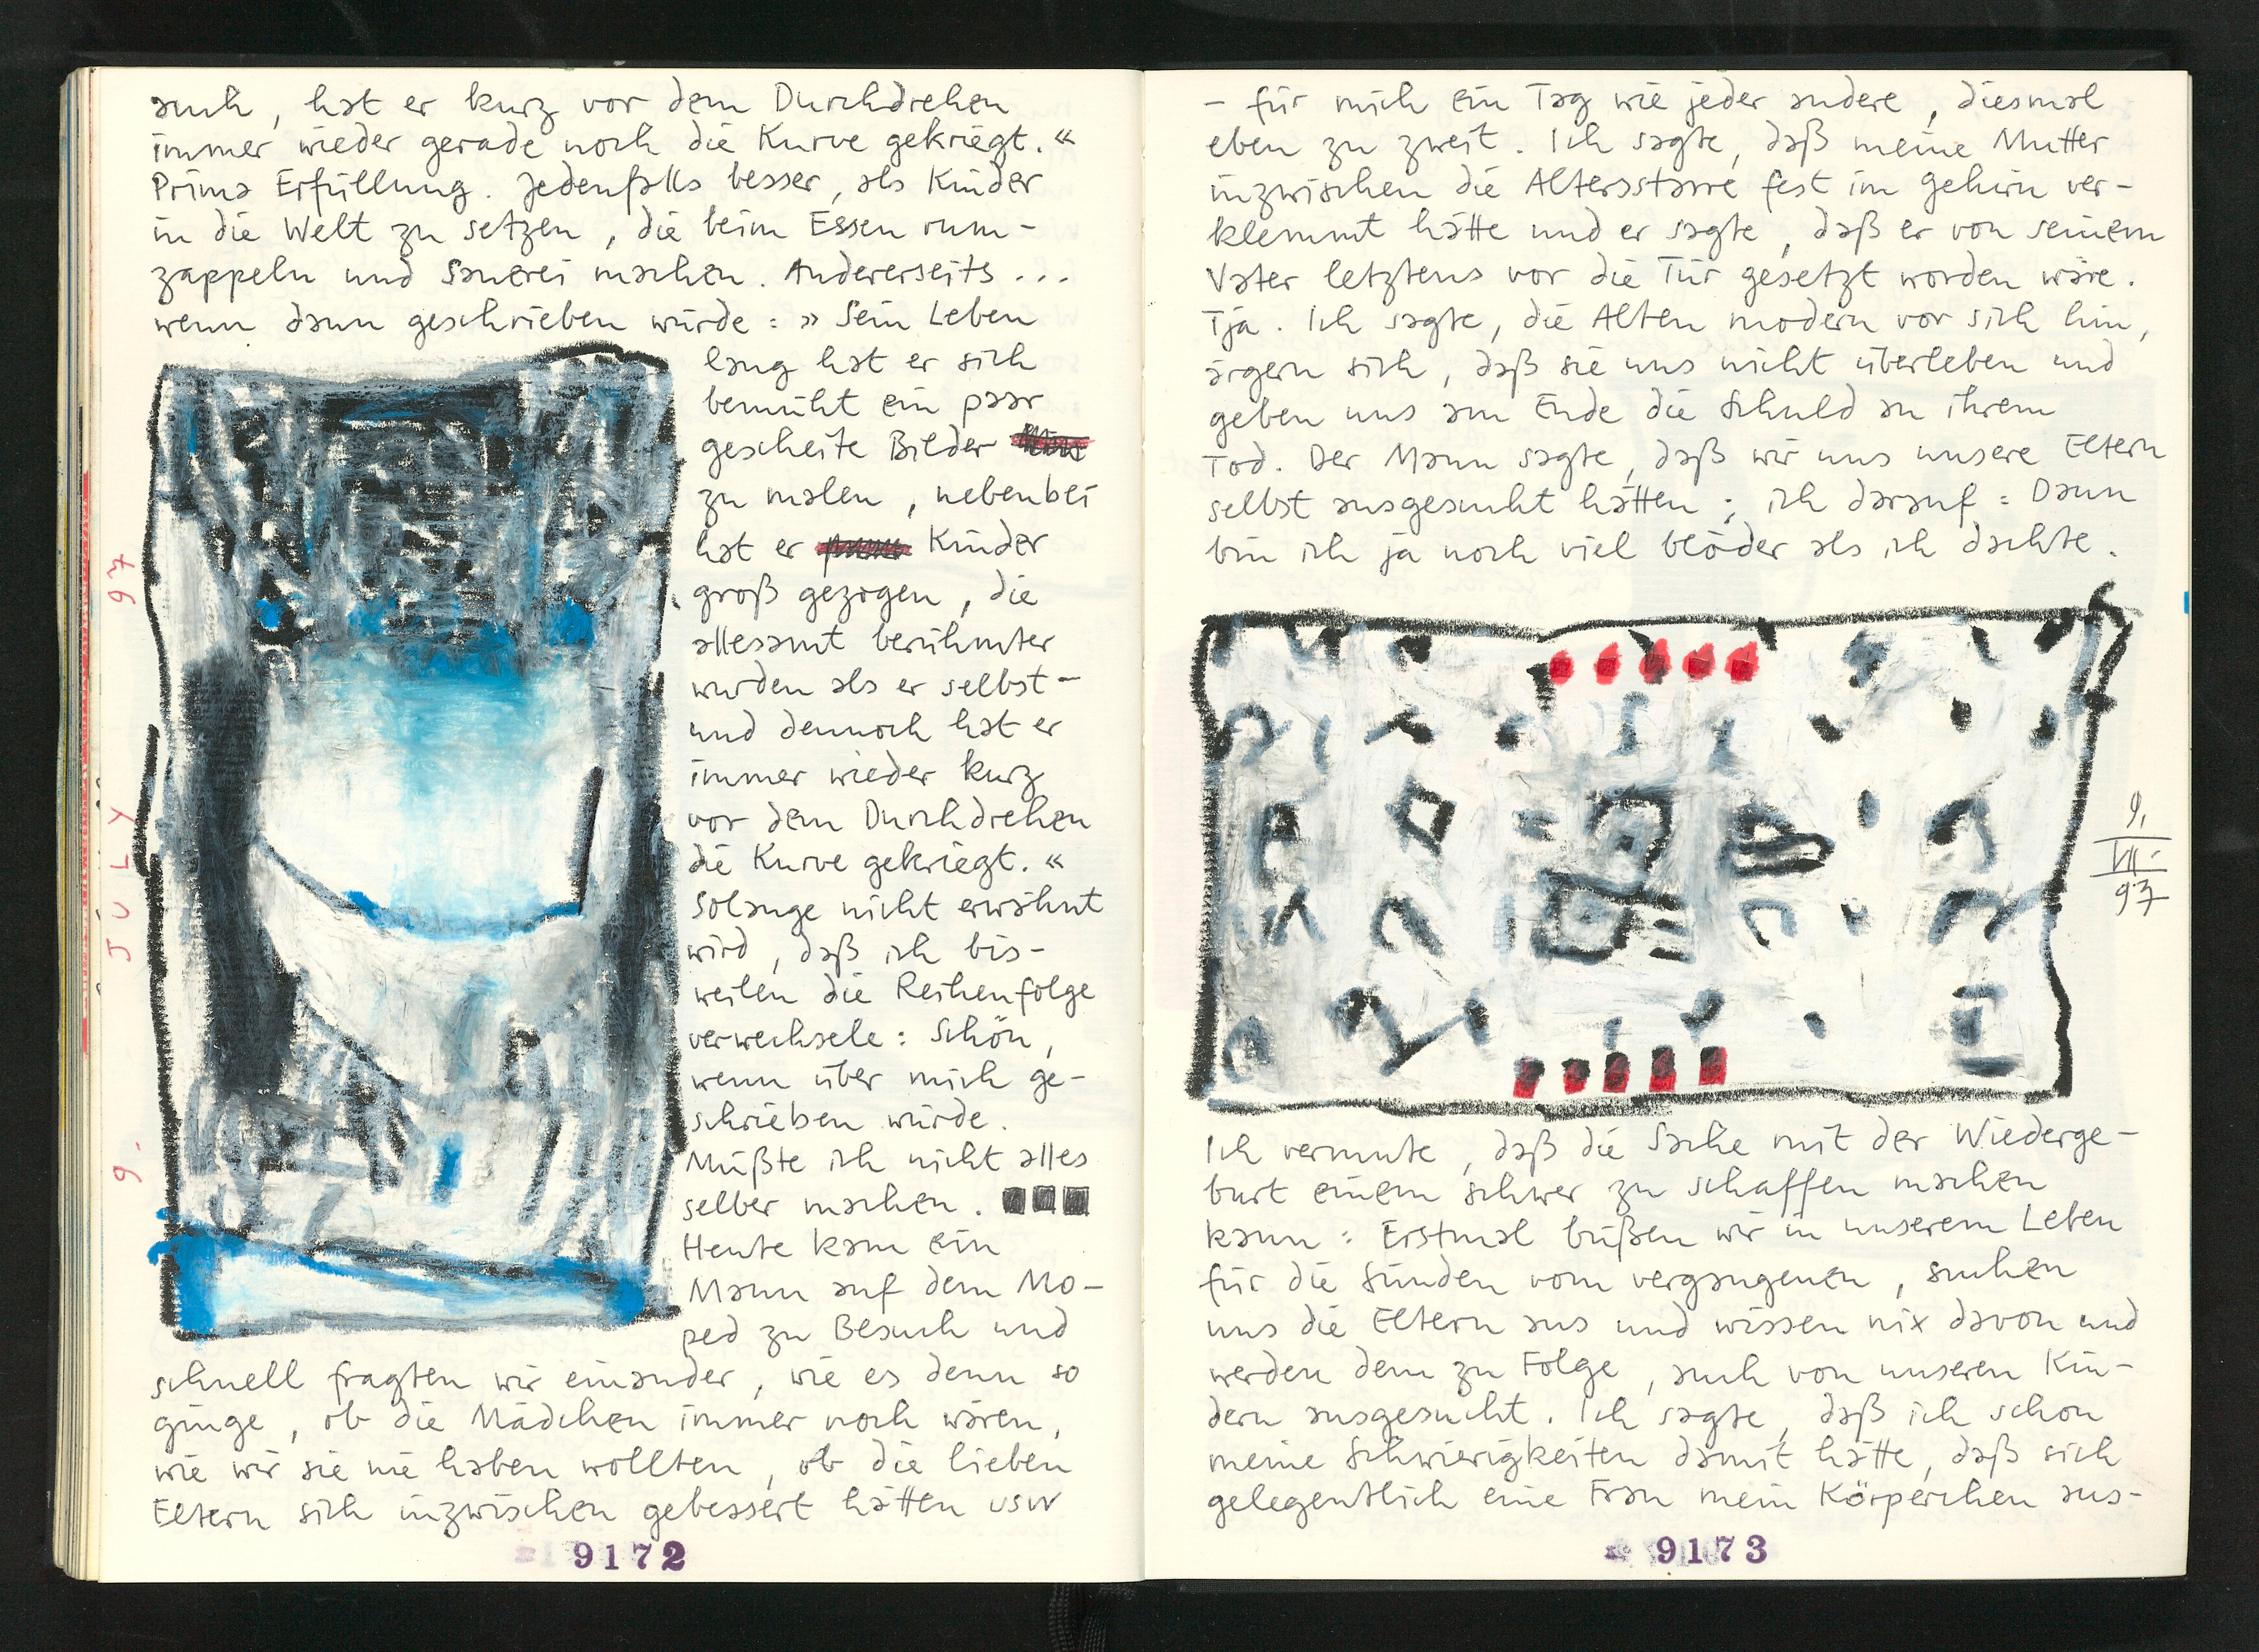 auch, hat er kurz vor dem Durchdrehen
immer wieder gerade noch die Kurve gekriegt.«
Prima Erfüllung. Jedenfalls besser, als Kinder
in die Welt zu setzen, die beim Essen rum-
zappeln und Sauerei machen. Andererseits ...
wenn dann geschrieben würde: »Sein Leben
lang hat er sich
bemüht ein paar
gescheite Bilder
zu malen, nebenbei
hat er Kinder
groß gezogen, die
allesamt berühmter
wurden als er selbst –
und dennoch hat er
immer wieder kurz
vor dem Durchdrehen
die Kurve gekriegt.«
Solange nicht erwähnt
wird, daß ich bis-
weilen die Reihenfolge
verwechsele: Schön,
wenn über mich ge-
schrieben würde.
Müßte ich nicht alles
selber machen.
Heute kam ein
Mann auf dem Mo-
ped zu Besuch und
schnell fragten wir einander, wie es denn so
ginge, ob die Mädchen immer noch wären,
wie wir sie nie haben wollten, ob die lieben
Eltern sich inzwischen gebessert hätten usw
9. JULY 97
9172
– für mich ein Tag wie jeder andere, diesmal
eben zu zweit. Ich sagte, daß meine Mutter
inzwischen die Altersstarre fest im Gehirn ver-
klemmt hätte und er sagte, daß er von seinem
Vater letztens vor die Tür gesetzt worden wäre.
Tja. Ich sagte, die Alten modern vor sich hin,
ärgern sich, daß sie uns nicht überleben und
geben uns am Ende die Schuld an ihrem
Tod. Der Mann sagte, daß wir uns unsere Eltern
selbst ausgesucht hätten; ich darauf: Dann
bin ich ja noch viel blöder als ich dachte.
9.
VII.
97
Ich vermute, daß die Sache mit der Wiederge-
burt einem schwer zu schaffen machen
kann: Erstmal büßen wir in unserem Leben
für die Sünden vom vergangenen, suchen
uns die Eltern aus und wissen nix davon und
werden dem zu Folge, auch von unseren Kin-
dern ausgesucht. Ich sagte, daß ich schon
meine Schwierigkeiten damit hätte, daß sich
gelegentlich eine Frau mein Körperchen aus-
9173